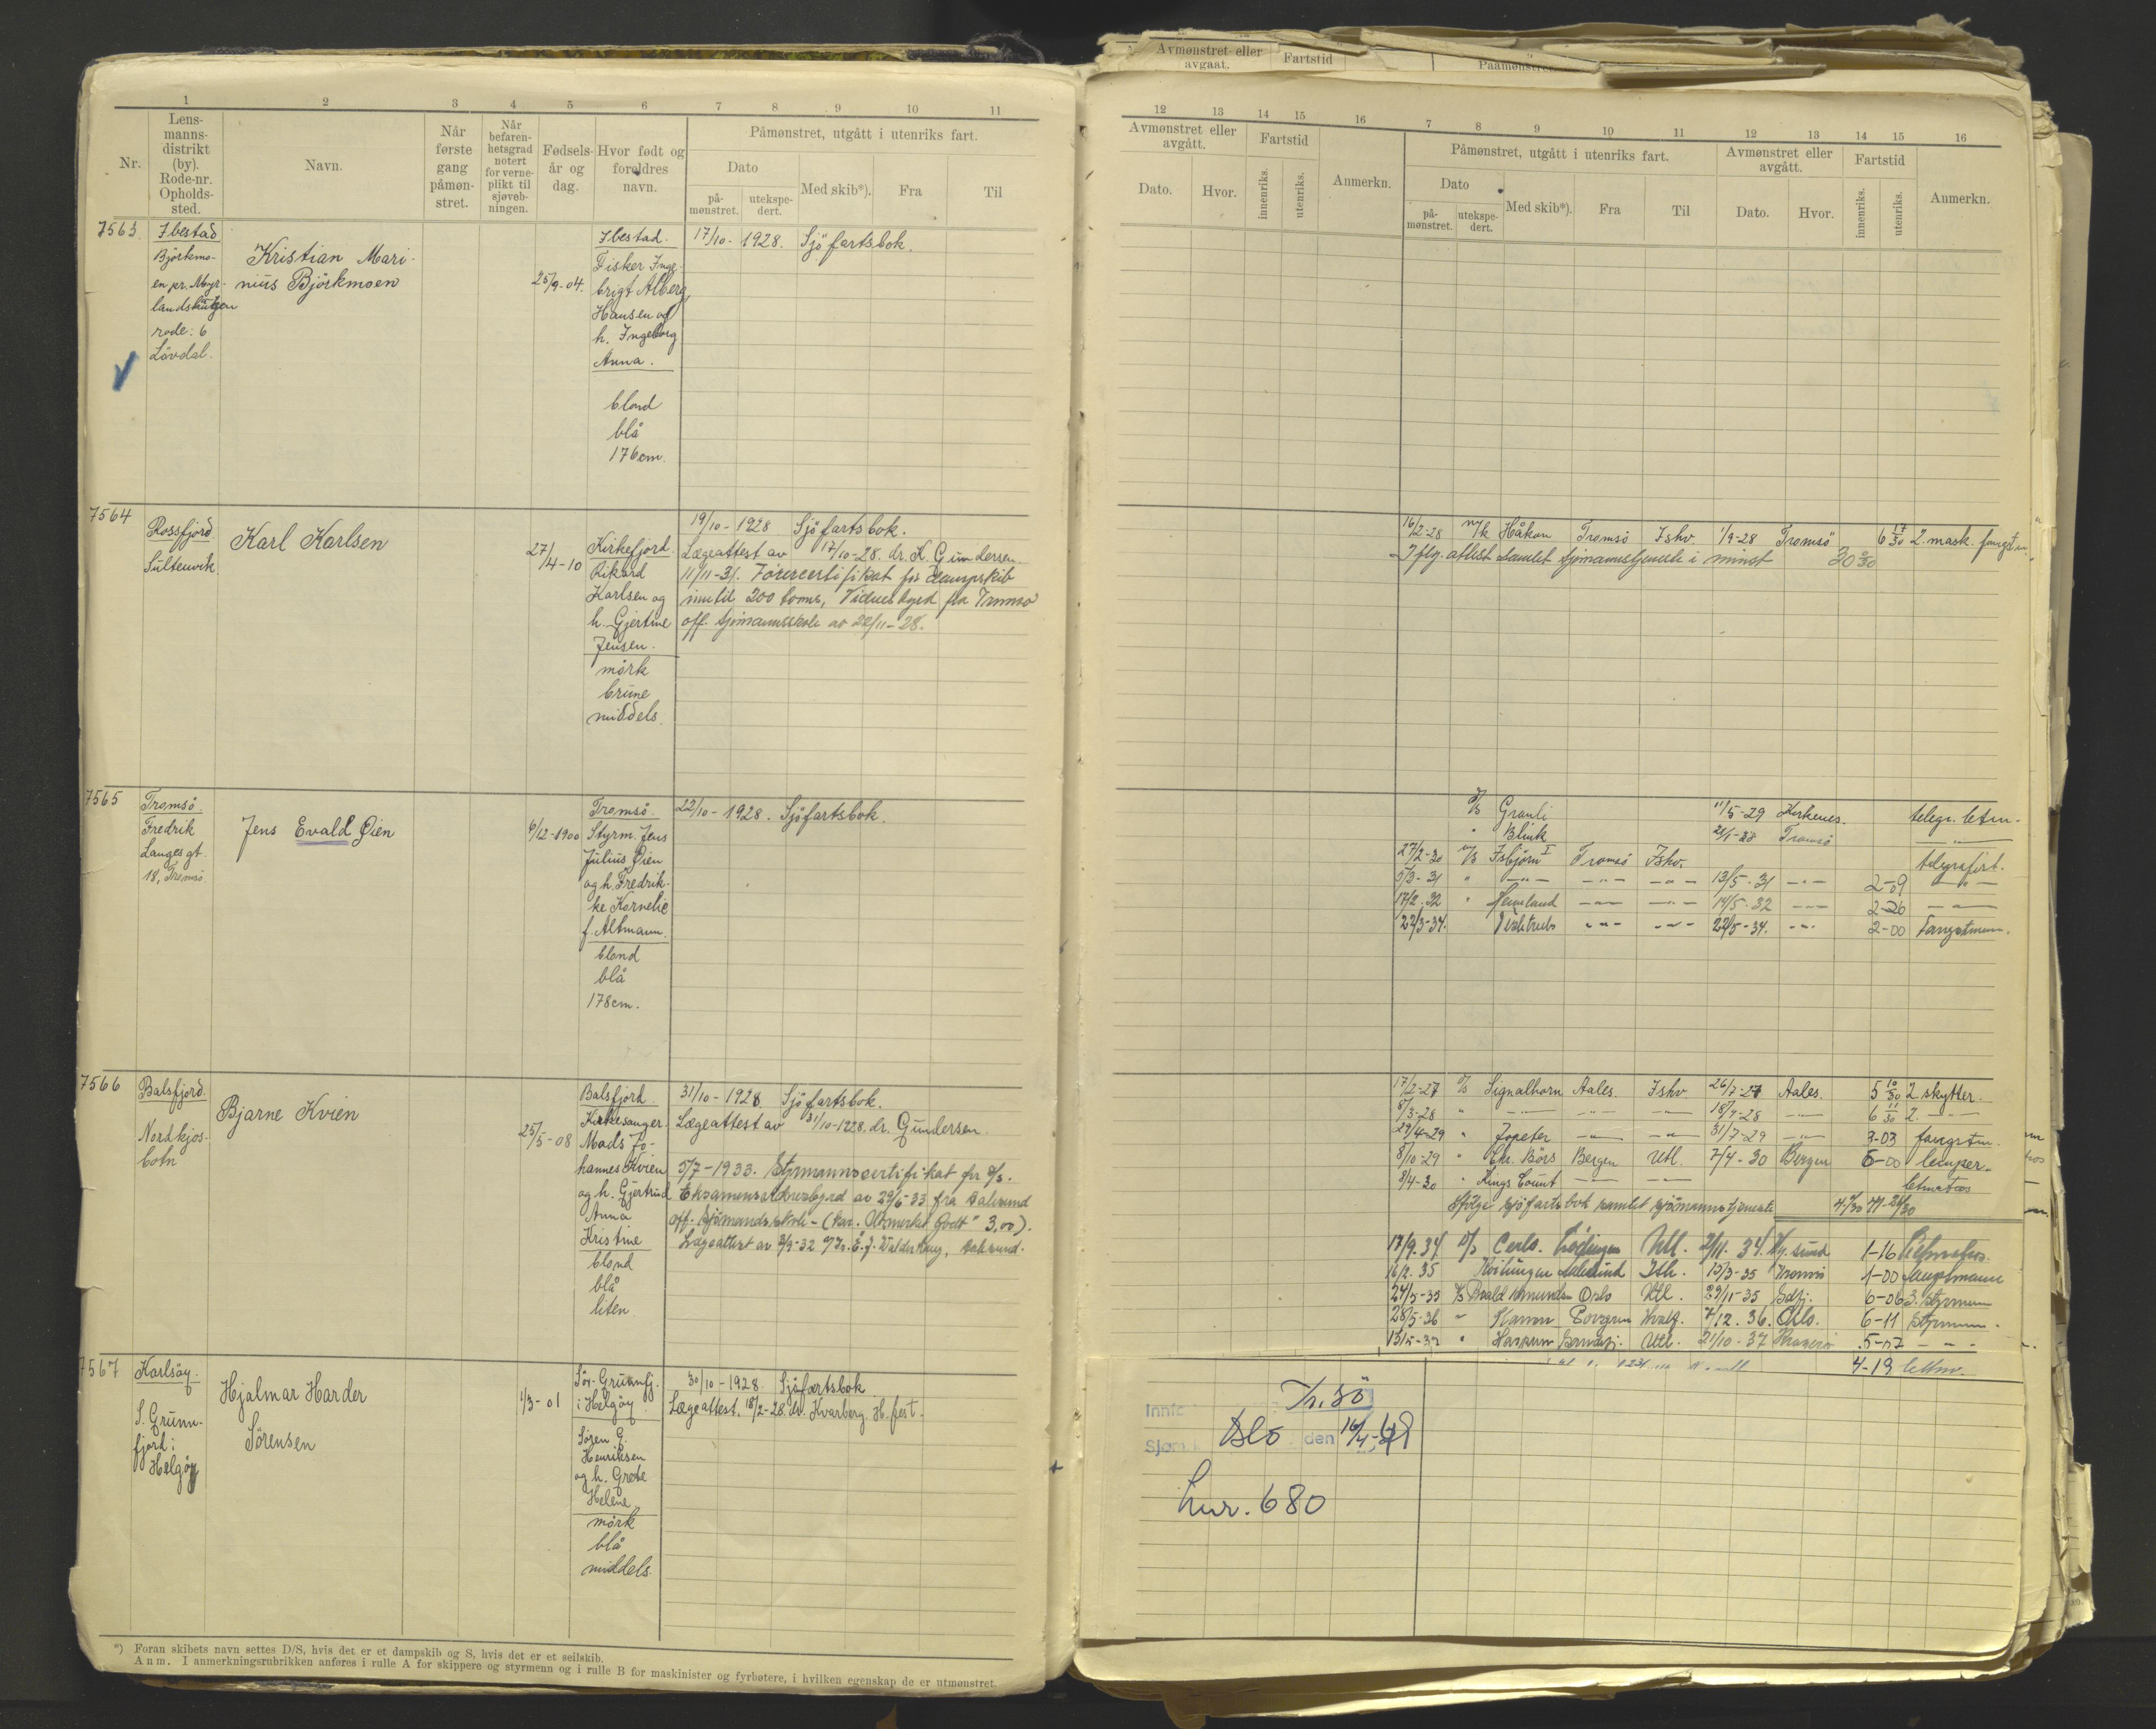 1 2 3 4 5 6 7 8 9 10 11
Nr.
Lens-
manns-
distrikt
(by).
Rode-nr.
Opholds-
sted.
Navn.
Når
første
gang
påmøn-
stret.
Når
befaren-
hetsgrad
notert
for verne-
plikt til
sjøveb-
ningen.
Fødsels-
år og
dag.
Hvor født og
foreldres
navn.
Påmønstret, utgått i utenriks fart.
Dato
på-
mønstret.
utekspe-
dert.
Med skib*).
Fra
Til
7563.
Ibestad
Björkmo-
en pr. Myr-
landshaugen
rode: 6
Lövdal.
Kristian Mari-
nius Björkmoen
25/9-04.
Ibestad.
Fisker Inge-
brigt Alberg
Hansen og
h. Ingeborg
Anna.
blond
blå
176 cm.
17/10-1928. Sjöfartsbok.
7564
Rossfjord
Sultenvik
Karl Karlsen
27/4-10
Kirkefjord.
Rikard
Karlsen og
h. Gjertine
Jensen.
mörk
brune
middels.
19/10-1928 Sjöfartsbok.
Lægeattest av 17/10-28. dr. K. Gundersen.
11/11-31. Förercertifikat for dampskib
inntil 200 tonns, Vidnesbyrd fra Tromsø
off. sjømannsskole av 22/11-28.
7565
Tromsö.
Fredrik
Langes gt.
18, Tromsö
Jens Evald Øien
6/12-1900
Tromsö.
Styrm. Jens
Julius Øien
og h. Fredrik-
ke Kornelie
f. Altmann.
blond
blå
178 cm.
22/10-1928. Sjöfartsbok.
7566
Balsfjord.
Nordkjos-
botn
Bjarne Kvien
25/5-08
Balsfjord.
Kirkesanger
Mads Jo-
hannes Kvien
og h. Gjertrud
Anna
Kristine
blond
blå
liten
31/10-1928 Sjöfartsbok.
Lægeattest av 31/10-1928. dr. Gundersen.
5/7-1933. Styrmannscertifikat for
Eksamensvidnesbyrd av 29/5 33 fra Aalesund
off. Sjömandsskole - (kar. "Utmerket godt" 3,00).
Lægeattest av 2/9-32 Aalesund.
7567
Karlsöy.
S. Grunn-
fjord i
Helgöy
Hjalmar Harder
Sörensen
1/3-01
Sör-Grunnfj.
i Helgöy
Sören G.
Henriksen
og h. Grete
Helene
mörk
blå
middels.
30/10-1928. Sjöfartsbok
Lægeattest. 18/2-28. dr. Kvarberg. H.fest.
*) Foran skibets navn settes D/S, hvis det er et dampskib og S, hvis det er et seilskib.
Anm. I anmerkningsrubrikken anføres i rulle A for skippere og styrmenn og i rulle B for maskinister og fyrbøtere, i hvilken egenskap de er utmønstret.
Avmønstret eller
avgaat.
Fartstid
Paamønstret
12 13 14 15 16 7 8 9 10 11 12 13 14 15 16
Avmønstret eller
avgått.
Dato.
Hvor.
Fartstid
innenriks.
utenriks.
Anmerkn.
Påmønstret, utgått i utenriks fart.
Dato
på-
mønstret.
utekspe-
dert.
Med skib*).
Fra
Til
Avmønstret eller
avgått.
Dato.
Hvor.
Fartstid
innenriks.
utenriks.
Anmerkn.
16/2-28 m/k Håkon Tromsö Ishv. 1/9-28 Tromsö 6 17/30 2. mask. fangstm.
Iflg. attest samlet sjømannstjeneste i minst
Granli 11/5-29 Kirkenes. telegr. letm.
" Blink Tromsö
27/2-30 Isbjørn I Tromsö Ishv. telegrafist.
5/3-31 " 13/5-31 2-09
17/2-32 " Heimland 14/5-32 2-26
22/3-34. Veslekari 22/5-34. 2-00 Fangstmann.
17/2-27 Signalhorn Aales. Ishv. 26/7-27 Aales. 5 10/30 2 skytter.
8/3-28 " 18/9-28 6 11/30 2.
29/4-29 " Jopeter 31/7-29 3-03 fangstm.
8/10-29 " Chr. Börs Bergen Utl. 7/4-30 Bergen 6-00 lemper
8/4-30 " Kings Count letmatros
Ifølge sjöfartsbok samlet sjömannstjeneste
17/9.34 Lödingen Utl. 2/11.34. 1-16
16/2.35 Kvitungen Aalesund Ish. 15/3-35 Tromsö 1-00 fangstmann
24/5-35 Roald Amundsen Oslo Utl. 29/11-35 Sdfj. 6-06 3. styrmann
28/5-36 " Hvalf. 7/12.36. Oslo. 6-11 styrmann.
" Sandefj. Utl. 21/10-37 Kragerö 5-07
4-19 lettm.
Tr.sö
Oslo den
Lnr. 680